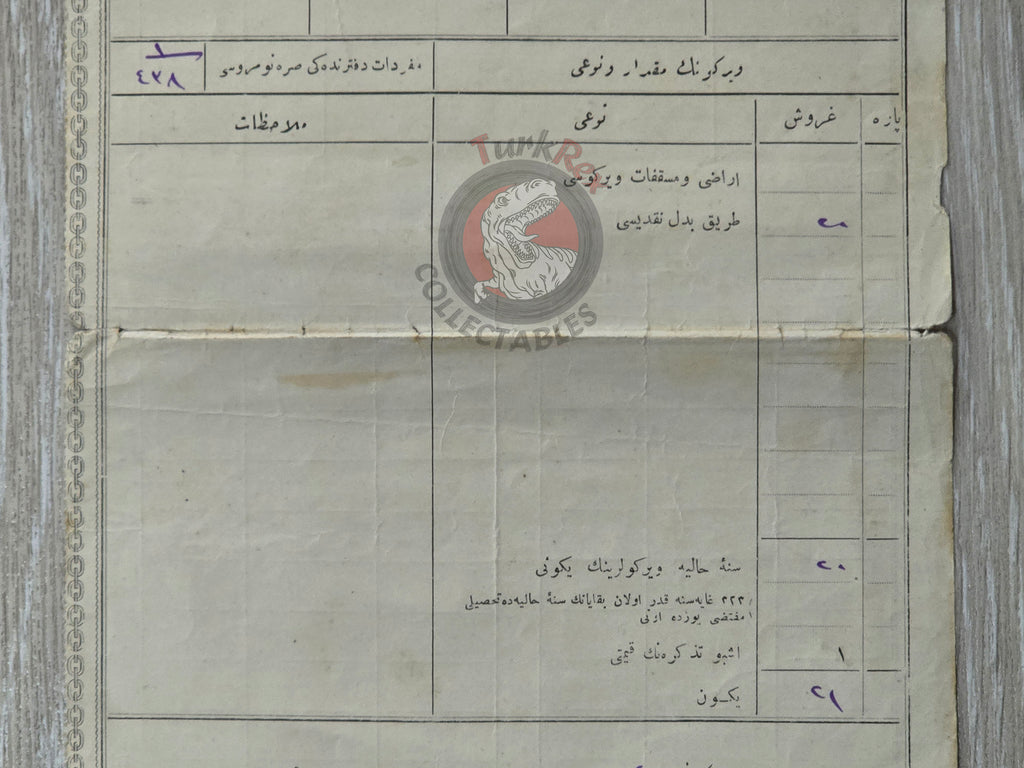 ویركونك مقدار و نوعی
مفردات دفترنده‌كی صره نومروسی
١
٤٣٨
پاره
غروش
نوعی
ملاحظات
اراضی و مسقفات ویركوسی
طریق بدل نقدیسی
٢٠
سنهٔ حالیه ویركولرینك یكونی
٢٠
غایه‌سنه قدر اولان بقایانك سنهٔ حالیه‌ده تحصیلی
مقتضی یوزده اونی
اشبو تذكره‌نك قیمتی
١
یكـون
٢١
TurkRex
COLLECTABLES